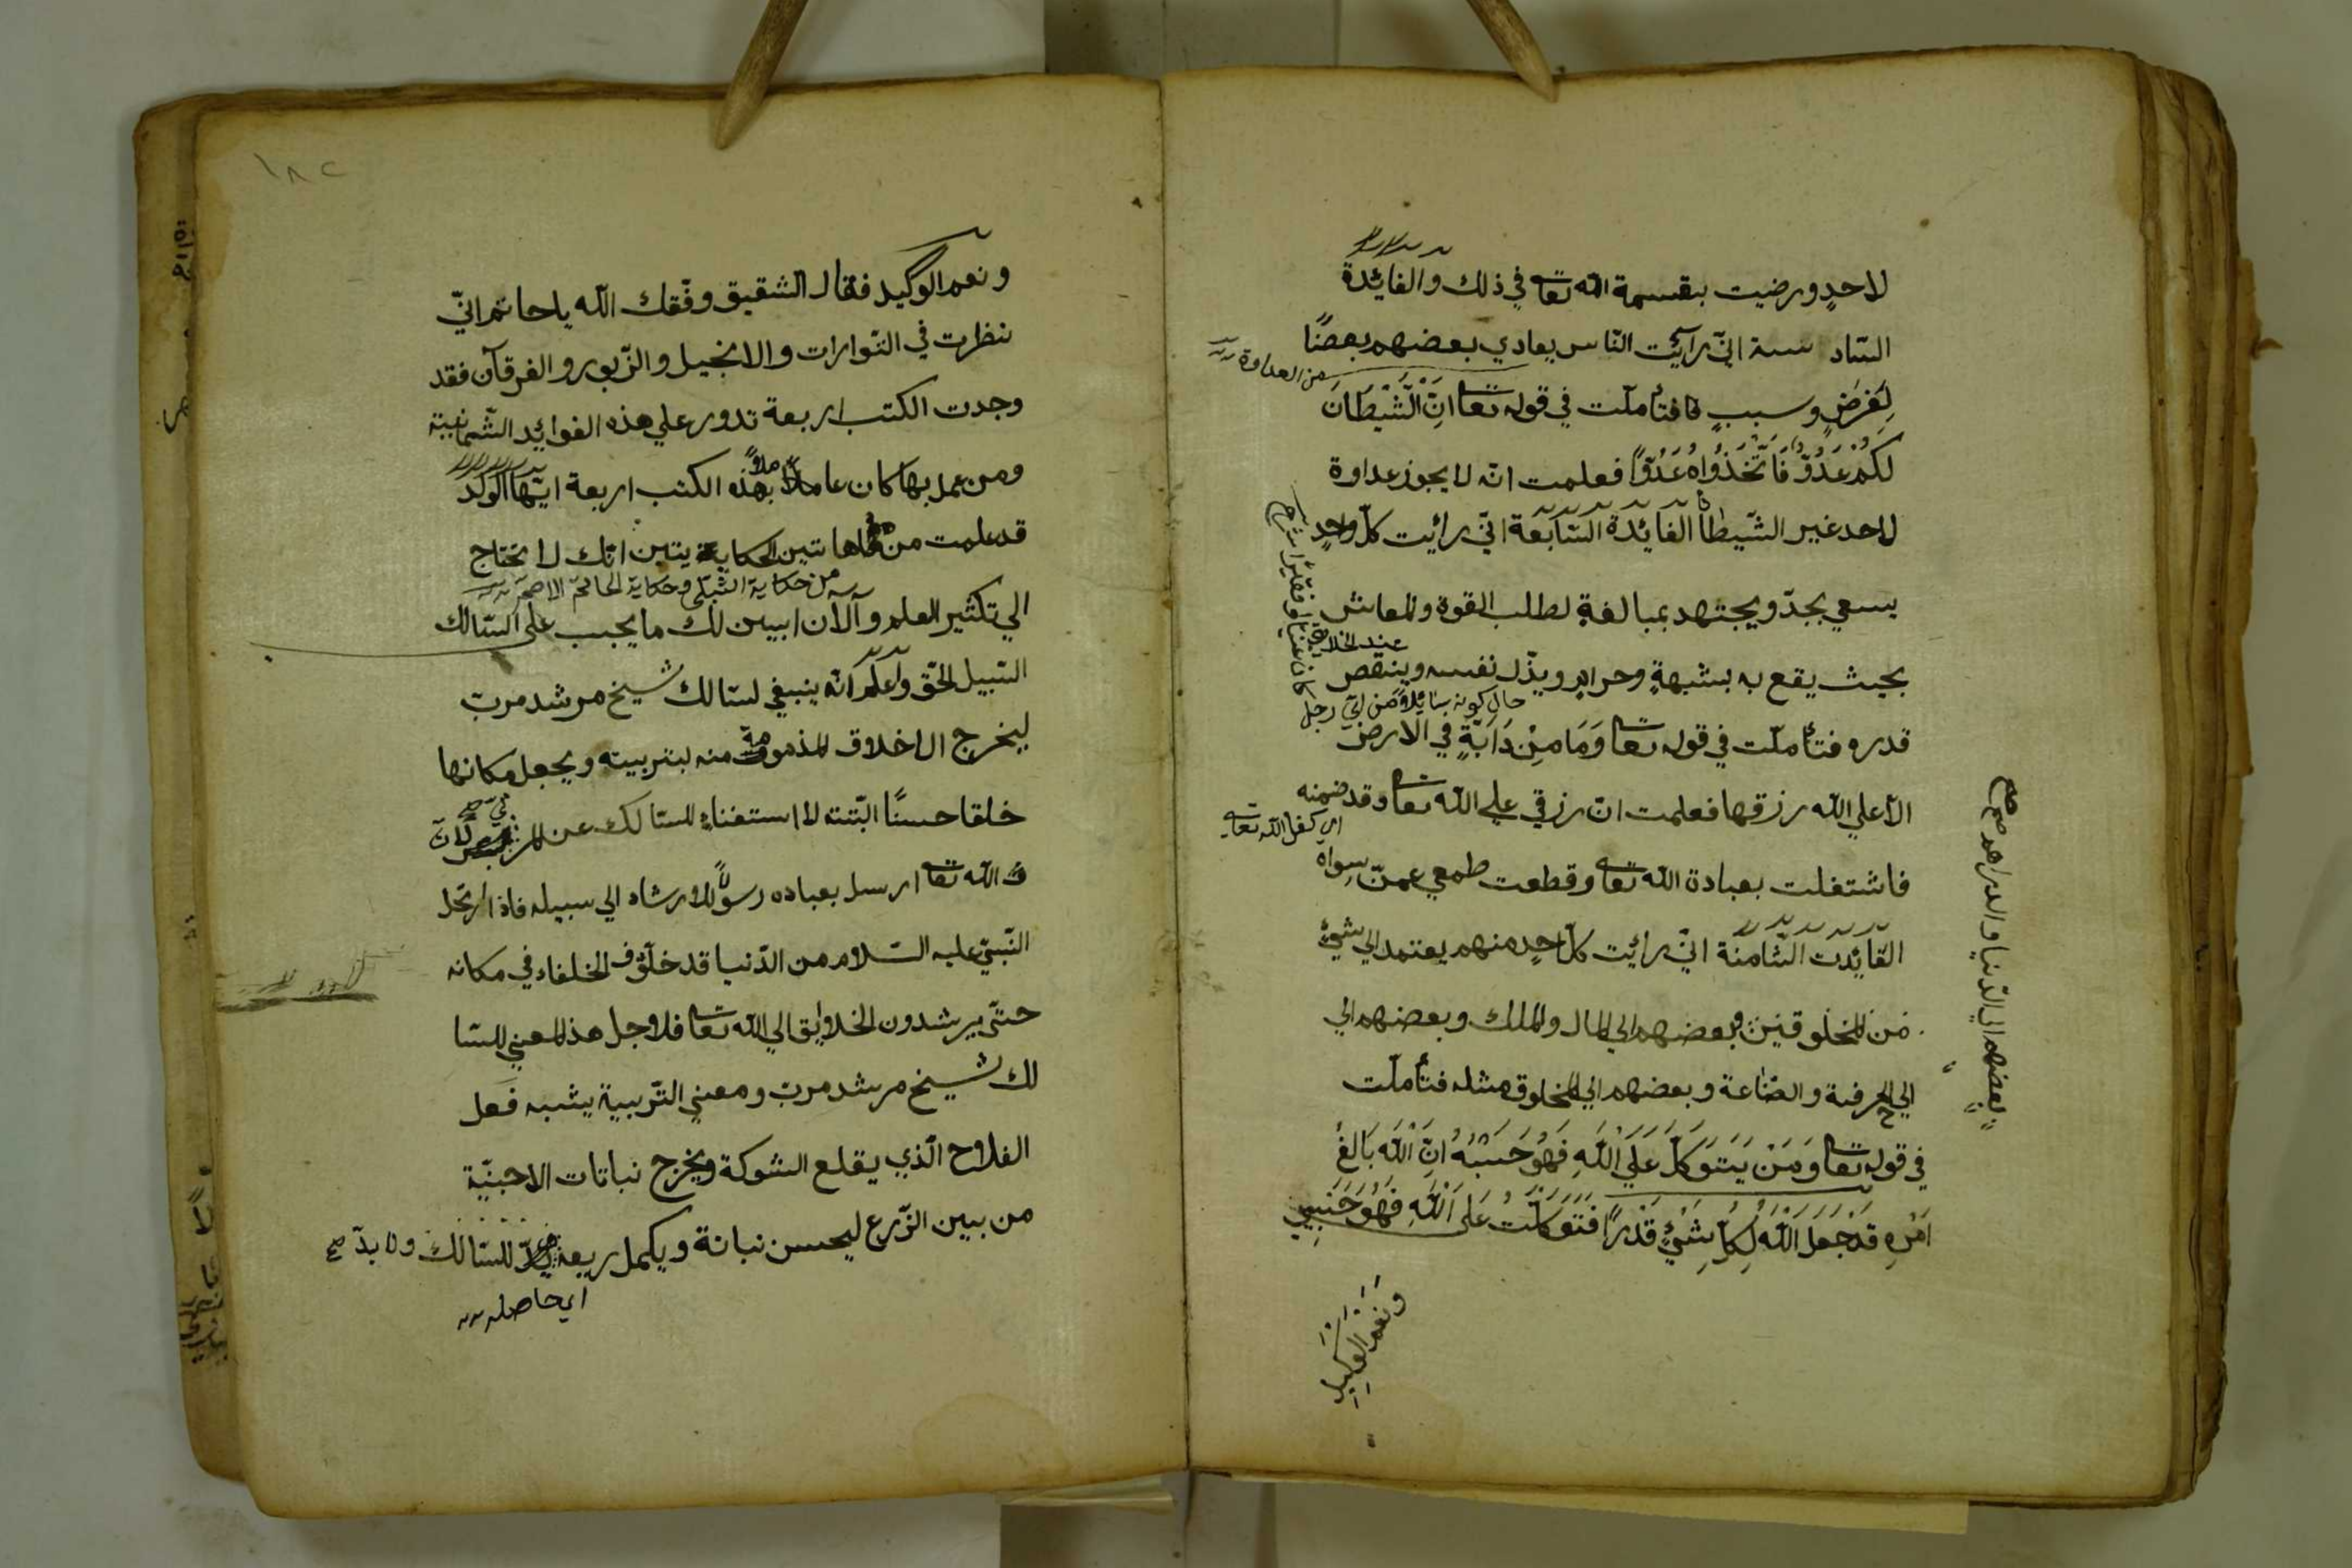 لاحدٍ ورضيت بقسمة الله تعا في ذلك والفائدة
السّادسة انّي رأيت النّاس يعادي بعضهم بعضًا
من العداوة
لِغَرَضٍ وسببٍ فتأملّت في قوله تعا اِنَّ الشَّيْطَانَ
لَكُمْ عَدُوٌّ فَاتَّخِذُوْاهُ عَدُوًّا فعلمت انّه لا يجوز عداوة
لاحد غير الشّيطان الفائدة السّابعة انّي رأيت كلّ واحدٍ
يسعي بجدّ ويجتهد بمبالغةٍ لطلب القوة والمعاش
بحيث يقع به بشبهةٍ وحرام ويذّل نفسه وينقص
حال كونه سائلاً من ايّ رجل
كان غنيا او فقيرا شرح
قدره فتأملّت في قوله تعا وَمَا مِنْ دَابَّةٍ في الارض
الاّ علي الله رزقها فعلمت انّ رزقي علي الله تعا وقد ضمنه
اي كفل الله تعا
فاشتغلت بعبادة الله تعا وقطعت طمعي عمنّ سِواه
الفائدت الثّامنة انّي رأيت كلّ احدٍ منهم يعتمد الي شيئ
من المخلوقين وبعضهم الي المال والملك وبعضهم الي
بعضهم الي الدّنيا والدراهم صح
الي الحرفة والصّناعة وبعضهم الي المخلوق مثله فتأملّت
في قوله تعا وَمَنْ يَتَوَكَّلْ عَلَي اللهِ فَهُوَ حَسْبُهُ اِنَّ اللهَ بَالِغُ
اَمْرِهِ قَدْ جَعَلَ اللهُ لِكُلِّ شَيْئٍ قَدْرًا فَتَوَكَّلْتُ عَلَى اللهِ فَهُوَ حَسْبِي
وَنِعْمَ الْوَكِيلِ
١٨٢
ونعم الوكيل فقال الشقيق وفّقك الله يا حاتم انّي
نظرت في التّوارات والانجيل والزّبور والفرقآن فقد
وجدت الكتب اربعة تدور علي هذه الفوائد الثّمانية
ومن عمل بها كان عاملاً بهذه الكتب اربعة ايّها الولد
قد علمت من هاتين الحكايتين انّك لا تحتاج
من حكاية الشّبلي وحكاية الحاتم الاصم
الي تكثير العلم والآن ابين لك ما يجب على السّالك
السّبيل الحّق واعلم انّه ينبغي لسّالك شيخ مرشد مربّ
ليخرج الاخلاق المذمومة منه بتربيته ويجعل مكانها
خلقا حسنًا البّتته لا استغناء للسّالك عن المربّي لانّ
الله تعا ارسل بعباده رسولاً للارشاد الي سبيله فاذا ارتحل
النّبيّ عليه السّلام من الدّنيا قد خلّف الخلفاء في مكانه
حتّى يرشدون الخلايق الي الله تعا فلاجل هذ المعني للسّا
لك شيخ مرشد مربّ ومعني التّربية يشبه فَعل
الفلاّح الّذي يقلع الشوكة ويخرج نباتات الاجنبّية
من بين الزّرع ليحسن نباتة ويكمل ريعه للسّالك ولا بدّ صح
اي حاصله